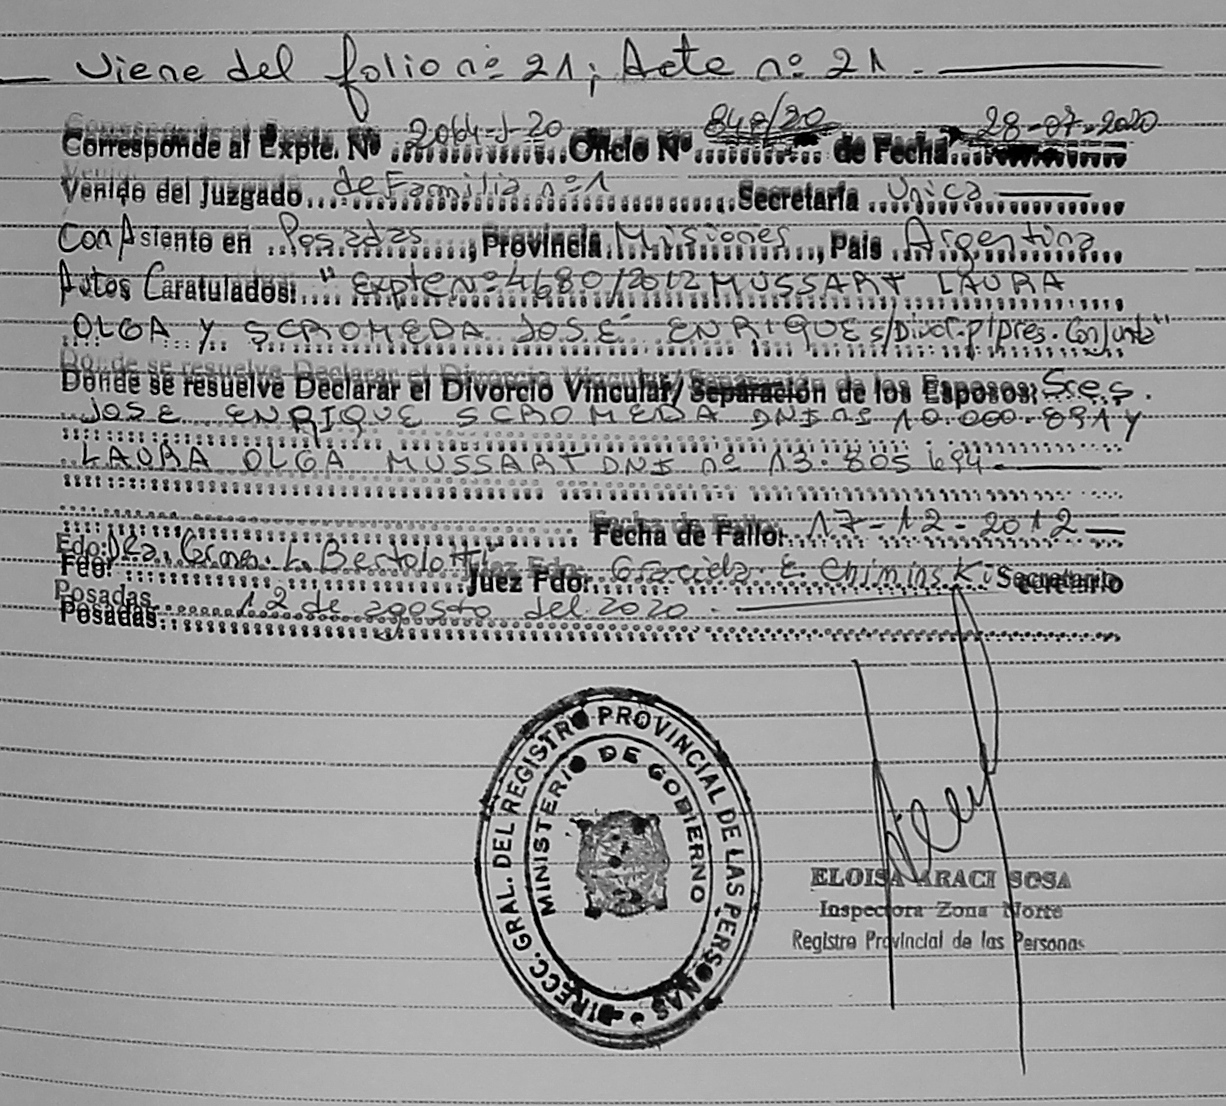 Viene del folio nº 21; Acte nº 21.
Corresponde al Expte. Nº 2064-J-20 Oficio Nº 848/20 de Fecha 28-07-2020
Venido del Juzgado de Familia nº 1 Secretaría Unica
Con Asiento en Posadas, Provincia Misiones, País Argentina
Autos Caratulados: "Expte Nº 4680/2012 MUSSART LAURA
OLGA Y SCROMEDA JOSÉ ENRIQUE s/Divor.p/pres. Conjunta"
Donde se resuelve Declarar el Divorcio Vincular/Separación de los Esposos: Sres.
JOSE ENRIQUE SCROMEDA DNI nº 10.000.891 Y
LAURA OLGA MUSSART DNI nº 13.805.694
Fecha de Fallo: 17-12-2012
Fdo: Dra. Carmen L. Bertolotti Juez Fdo: Graciela E. Chiminski Secretario
Posadas 12 de agosto del 2020
DIRECC. GRAL. DEL REGISTRO PROVINCIAL DE LAS PERSONAS
MINISTERIO DE GOBIERNO
ELOISA ARACI SOSA
Inspectora Zona Norte
Registro Provincial de las Personas